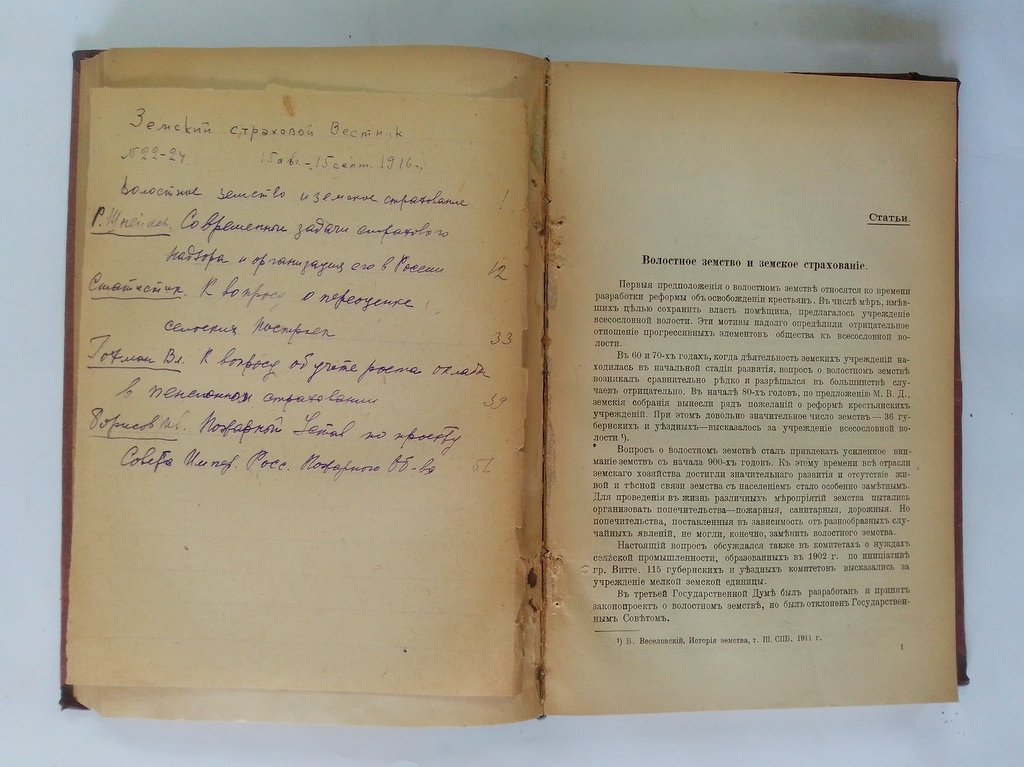 Земский страховой Вестник
№ 22-24 15 авг. - 15 сент. 1916 г.
Волостное земство и земское страхование. 1
Р. Современные задачи страхового
надзора и организация его в России 12
Статистик. К вопросу о переоценке
сельских построек 33
Гохман Вл. К вопросу об учете роста оклада
в пенсионном страховании 39
Борисов Ив. Пожарный Устав по проекту
Совета Импер. Росс. Пожарного Об-ва 51
Статьи.
Волостное земство и земское страхованіе.
Первыя предположенія о волостномъ земствѣ относятся ко времени
разработки реформы объ освобожденіи крестьянъ. Въ числѣ мѣръ, имѣв-
шихъ цѣлью сохранить власть помѣщика, предлагалось учрежденіе
всесословной волости. Эти мотивы надолго опредѣлили отрицательное
отношеніе прогрессивныхъ элементовъ общества къ всесословной во-
лости.
Въ 60 и 70-хъ годахъ, когда дѣятельность земскихъ учрежденій на-
ходилась въ начальной стадіи развитія, вопросъ о волостномъ земствѣ
возникалъ сравнительно рѣдко и разрѣшался въ большинствѣ слу-
чаевъ отрицательно. Въ началѣ 80-хъ годовъ, по предложенію М. В. Д.,
земскія собранія вынесли рядъ пожеланій о реформѣ крестьянскихъ
учрежденій. При этомъ довольно значительное число земствъ — 36 гу-
бернскихъ и уѣздныхъ—высказалось за учрежденіе всесословной во-
лости ¹).
Вопросъ о волостномъ земствѣ сталъ привлекать усиленное вни-
маніе земствъ съ начала 900-хъ годовъ. Къ этому времени всѣ отрасли
земскаго хозяйства достигли значительнаго развитія и отсутствіе жи-
вой и тѣсной связи земства съ населеніемъ стало особенно замѣтнымъ.
Для проведенія въ жизнь различныхъ мѣропріятій земства пытались
организовать попечительства—пожарныя, санитарныя, дорожныя. Но
попечительства, поставленныя въ зависимость отъ разнообразныхъ слу-
чайныхъ явленій, не могли, конечно, замѣнить волостного земства.
Настоящій вопросъ обсуждался также въ комитетахъ о нуждахъ
сельской промышленности, образованныхъ въ 1902 г. по иниціативѣ
гр. Витте. 115 губернскихъ и уѣздныхъ комитетовъ высказались за
учрежденіе мелкой земской единицы.
Въ третьей Государственной Думѣ былъ разработанъ и принятъ
законопроектъ о волостномъ земствѣ, но былъ отклоненъ Государствен-
нымъ Совѣтомъ.
¹) Б. Веселовскій, Исторія земства, т. III. СПБ. 1911 г.
1